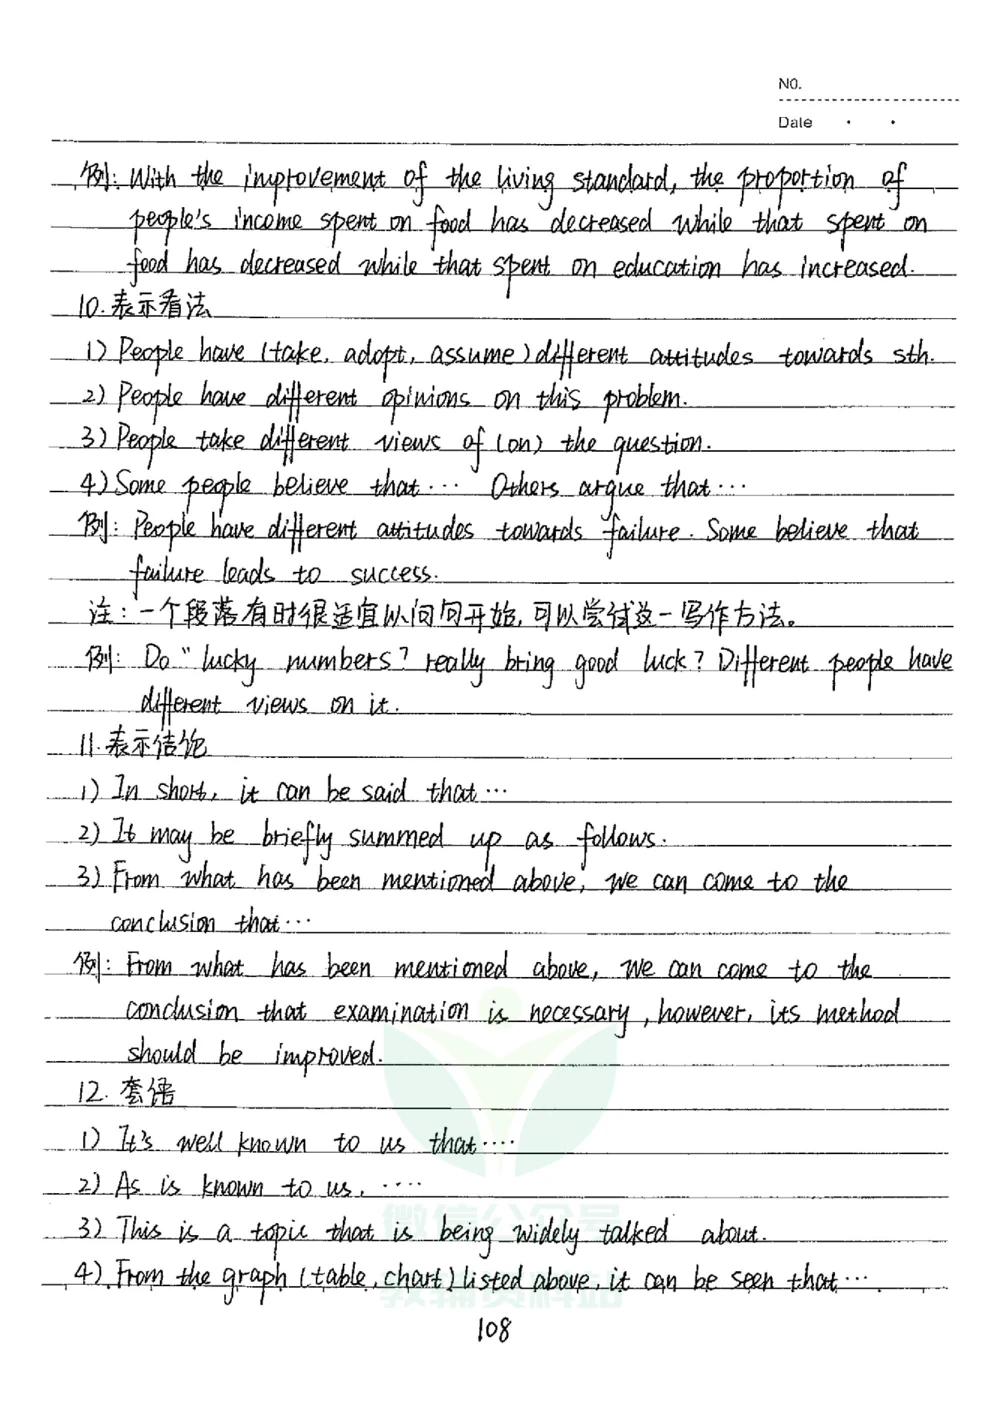 NO.
Date · ·
例: With the improvement of the living standard, the proportion of
people's income spent on food has decreased while that spent on
food has decreased while that spent on education has increased.
10.表示看法
1) People have (take, adopt, assume) different attitudes towards sth.
2) People have different opinions on this problem.
3) People take different views of (on) the question.
4) Some people believe that… Others argue that…
例: People have different attitudes towards failure. Some believe that
failure leads to success.
注:一个段落有时很适宜以问句开始,可以尝试这一写作方法。
例: Do "lucky numbers" really bring good luck? Different people have
different views on it.
11.表示结论
1) In short, it can be said that…
2) It may be briefly summed up as follows.
3) From what has been mentioned above, we can come to the
conclusion that…
例: From what has been mentioned above, we can come to the
conclusion that examination is necessary, however, its method
should be improved.
12. 套语
1) It's well known to us that….
2) As is known to us, ….
3) This is a topic that is being widely talked about.
4) From the graph (table, chart) listed above, it can be seen that…
微信公众号
教辅资料站
108